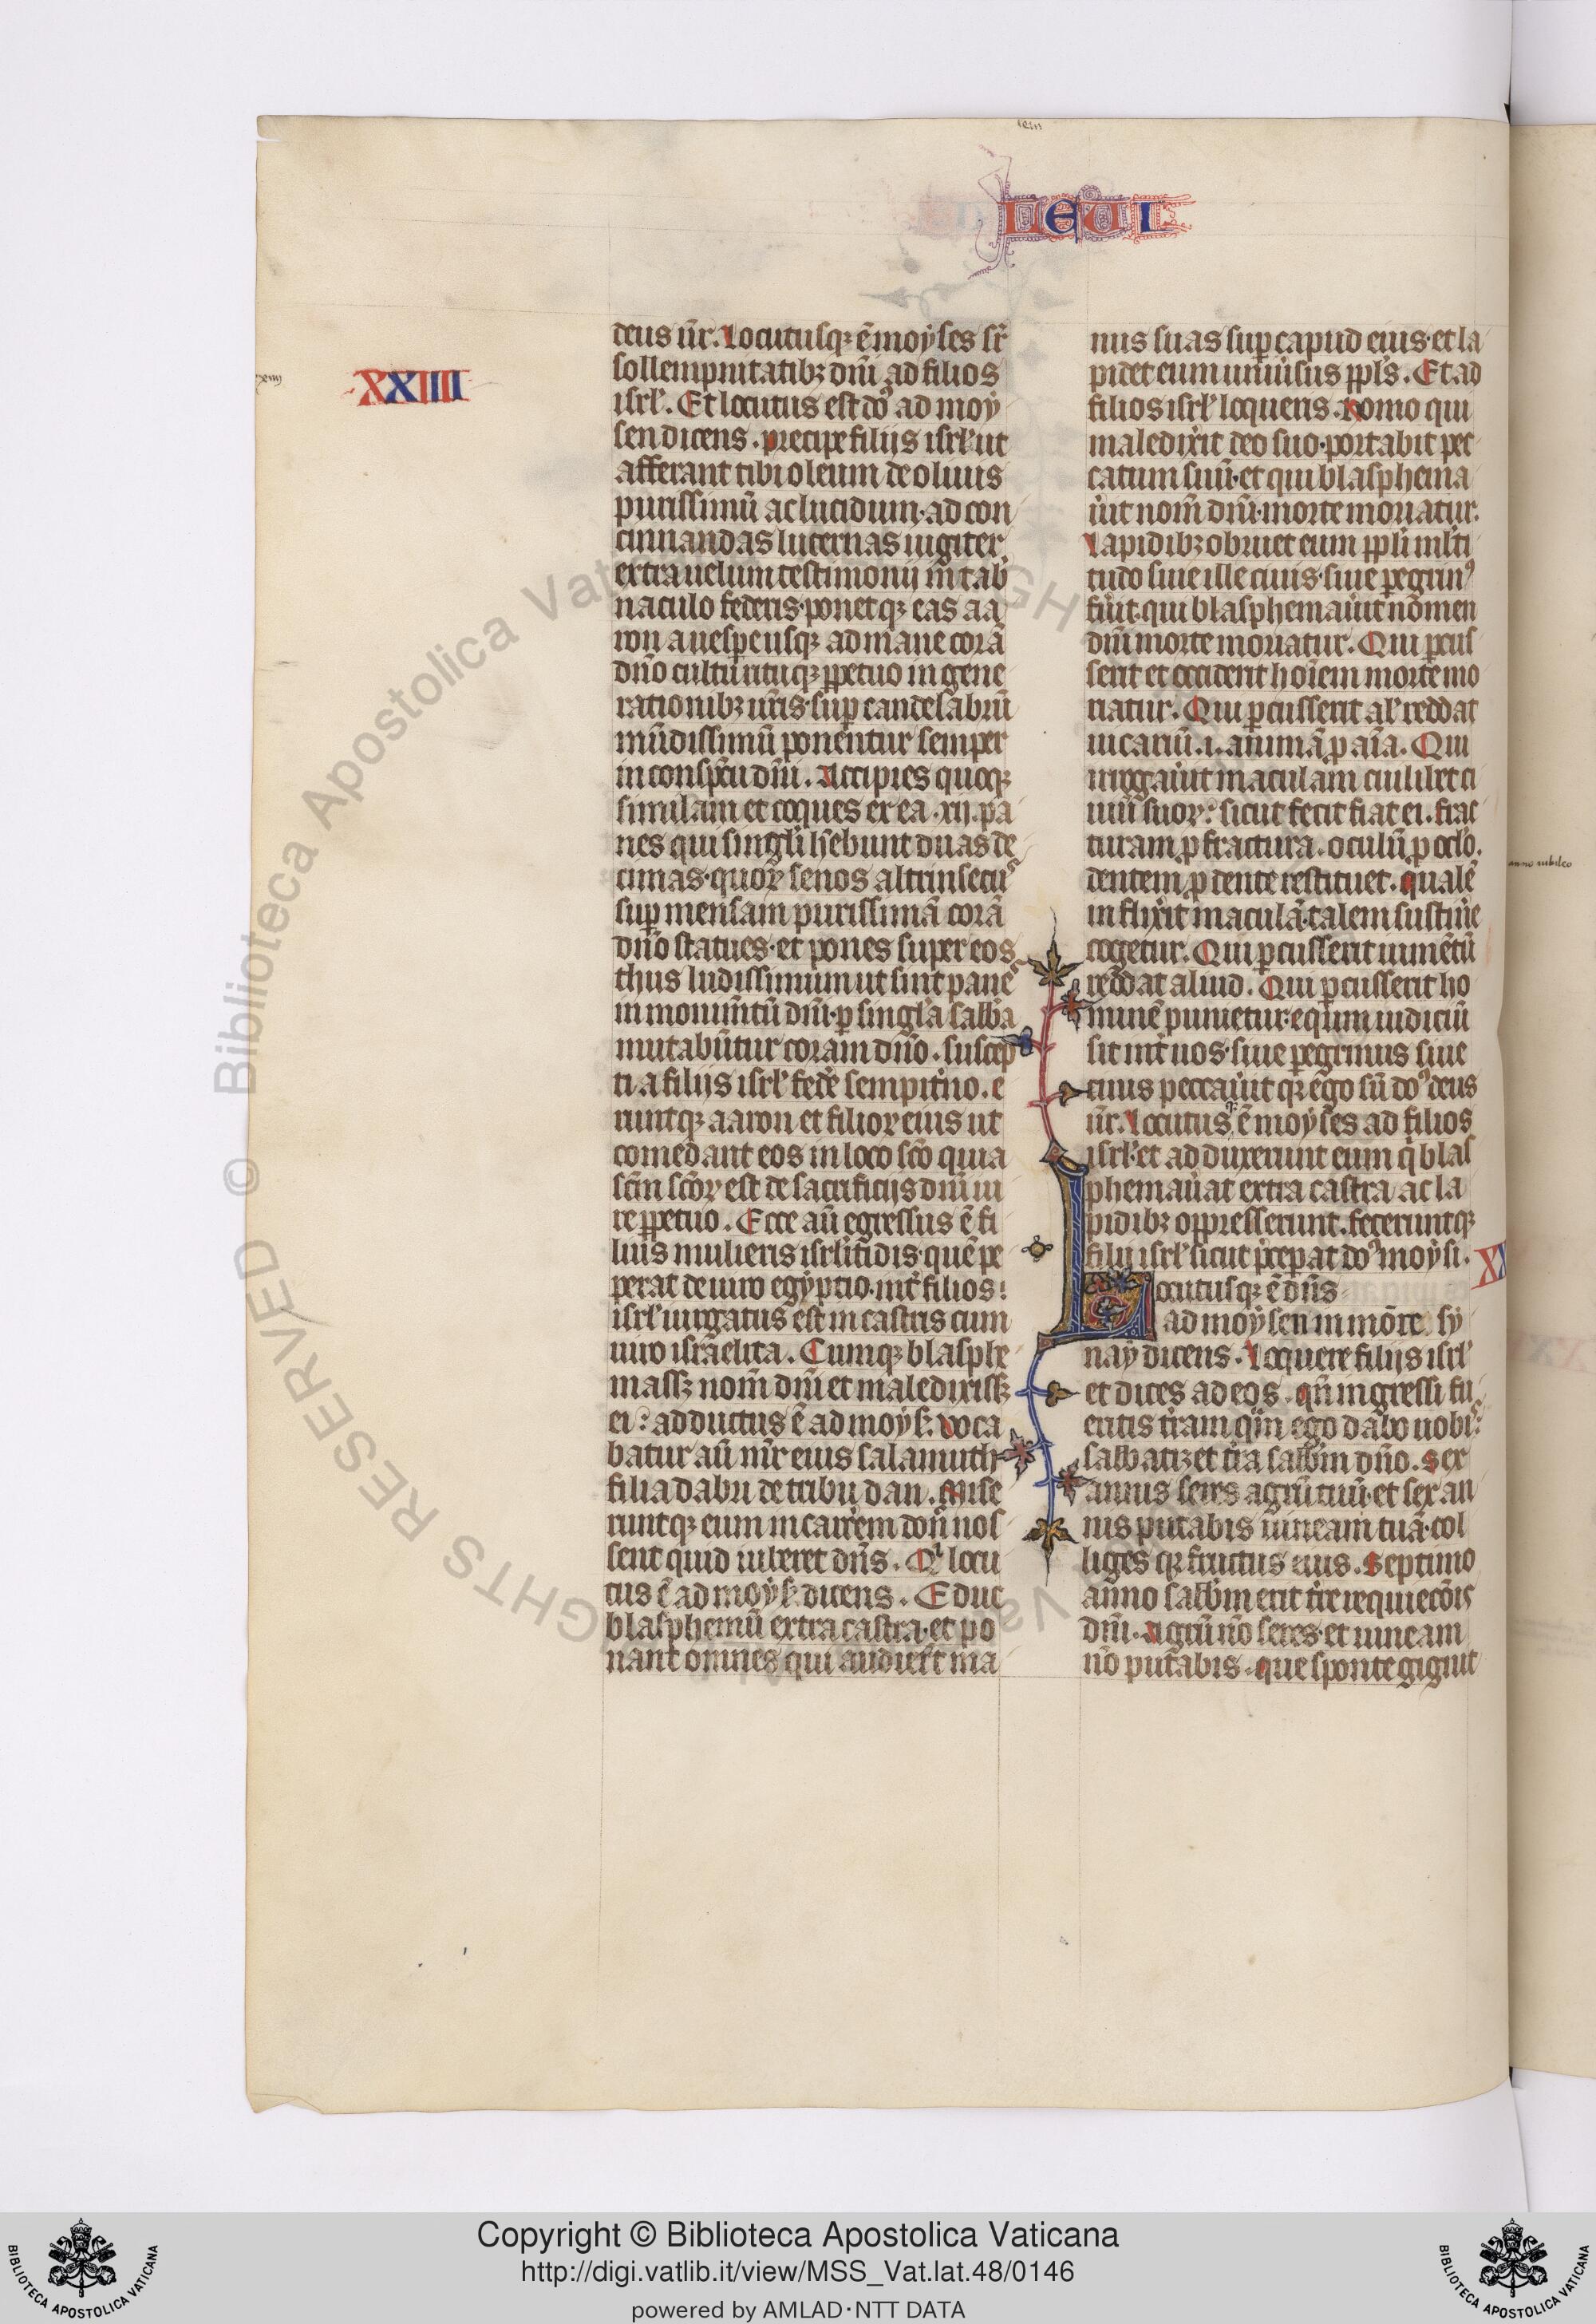 iem
LEVI
XXIIII
deus ur̄. Locutusqꝫ ē moyses sr̄
sollempnitatibꝫ dn̄i ad filios
isrl'. Et locutus est do᷒ ad moy
sen dicens. precipe filijs isrl' ut
afferant tibi oleum de oliuis
purissimū ac lucidum· ad con
cinnandas lucernas iugiter
extra uelum testimonij in tab'
naculo federis· ponetqꝫ eas aa
ron a uespe usqꝫ ad mane corā
dn̄o cultu rituqꝫ ꝑpetuo in gene
rationibꝫ ur̄is· sup candelabrū
mūdissimū ponentur semper
in conspc̄u dn̄i. Accipies quoqꝫ
similam et coques ex ea .xij. pa
nes qui singl'i hēbunt duas de
cimas· quoꝝ senos altrinsecu᷒
suꝑ mensam purissimā corā
dn̄o statues· et pones super eos
thus ludissimum ut sint pane᷒
in monim̄tū dn̄i· ꝑ singl'a sabb'a
mutabūtur coram dn̄o. suscep
ti a filijs isrl' fede' sempit'no. e
runtqꝫ aaron et filioꝝ eius ut
comedant eos in loco sc̄o quia
sc̄m sc̄oꝝ est de sacrificijs dn̄i iu
re ꝑpetuo. Ecce aū egressus ē fi
lius mulieris isrl'itidis· quē pe
perat de uiro egyptio· int' filios
isrl' iurgatus est in castris cum
uiro israelita. Cumqꝫ blasphe
massꝫ nom̄ dn̄i et maledixissꝫ
ei: adductus ē ad moyſ. voca
batur aū mr̄ eius salamuth
filia dabri de tribu dan. Mise
runtqꝫ eum in carc'em don̄ nos
sent quid iuberet dn̄s. Qͥ locu
tus ē ad moyſ. dicens. Educ
blasphemū extra castra· et po
nant omnes qui audier̄t ma
nus suas suꝑ capud eius· et la
pidet eum uniu'sus ppl's. Et ad
filios isrl' loqueris. Homo qui
maledixit deo suo· portabit pec
catum suū· et qui blasphema
u'it nom̄ dn̄i· morte moriatur.
Lapidibꝫ obruet eum ppl'i ml'ti
tudo siue ille ciuis· siue ꝑegrin᷒
fu'it· qui blasphemau'it nomen
dn̄i morte moriatur. Qui ꝑcus
serit et occiderit hoīem morte mo
riatur. Qui ꝑcusserit al' reddat
uicariū .i. animā ꝓ aīa. Qui
irrogau'it maculam cuilibet ci
uiū suoꝝ: sicut fecit fiat ei. frac
turam ꝓ fractura. oculū ꝓ oclo.
dentem ꝓ dente restituet. qualē
inflixit maculā· talem sustin'e
cogetur. Qui ꝑcusserit iumētū
reddat aliud. Qui ꝑcusserit ho
minē punietur· equm iudiciū
sit int' uos· siue ꝑegrinus siue
ciuis peccau'it qꝫ ego sū do᷒ deus
ur̄. Locutusqꝫ ē moyses ad filios
isrl'· et adduxerunt eum qͥ blas
phemau'at extra castra ac la
pidibꝫ oppresserunt. feceruntqꝫ
filij isrl' sicut p'cepat do᷒ moysi.
Locutusqꝫ ē dn̄s
ad moysen in mōte sy
nay dicens. Loquere filijs isrl'
et dices ad eos. qn̄ ingressi fu
eritis t'ram qͣm ego dabo uobis:
sabbatizet t'ra sabb'm dn̄o. sex
annis seres agrū tuū· et sex an
nis putabis uineam tuā· col
liges qꝫ fructus eius. Septimo
anno sabb'm erit t're requiecōis
dn̄i. Agrū nō seres· et uineam
nō putabis. que sponte gignit
XX
anno iubileo
© Biblioteca Apostolica Vaticana
ALL RIGHTS RESERVED
Copyright © Biblioteca Apostolica Vaticana
http://digi.vatlib.it/view/MSS_Vat.lat.48/0146
powered by AMLAD·NTT DATA
BIBLIOTECA APOSTOLICA VATICANA
BIBLIOTECA APOSTOLICA VATICANA